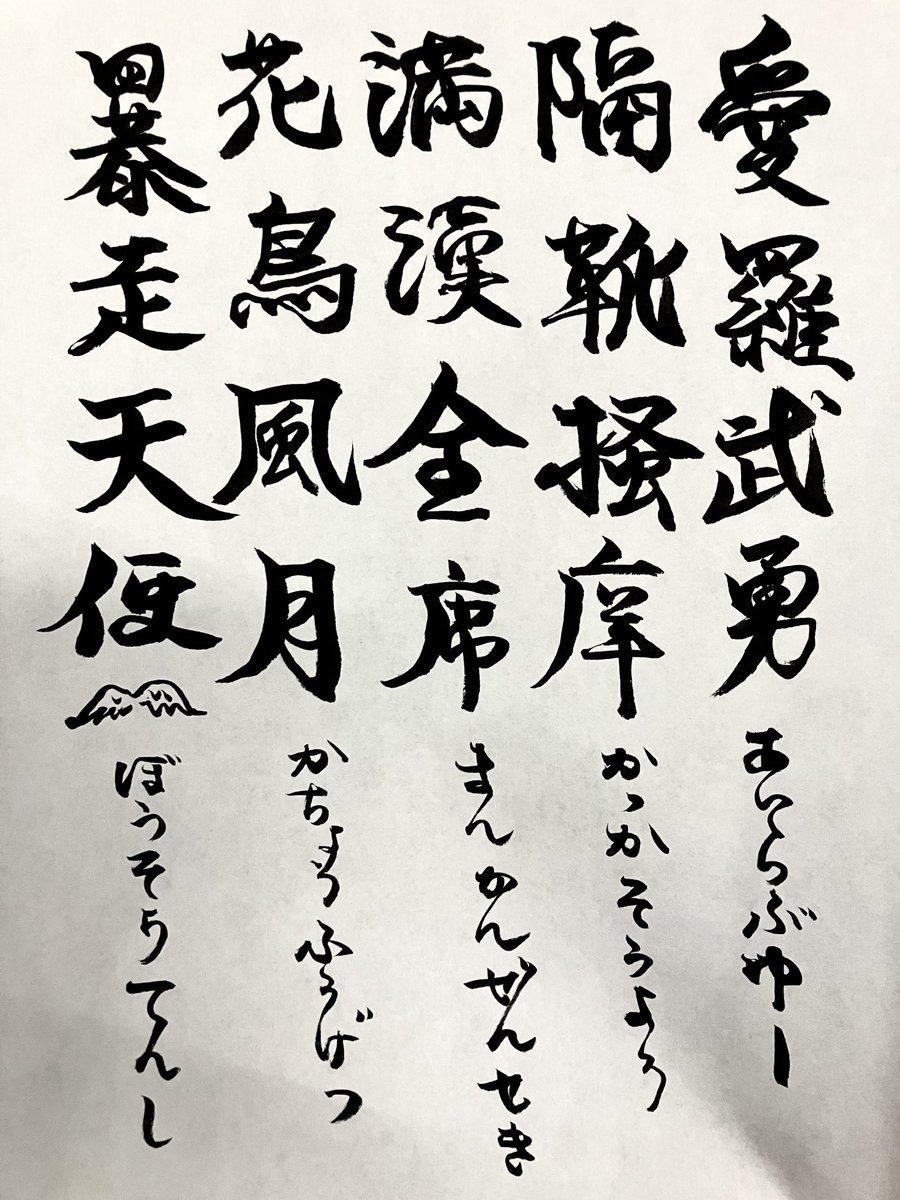 愛羅武勇 あいらぶゆー
隔靴掻痒 かっかそうよう
満漢全席 まんかんぜんせき
花鳥風月 かちょうふうげつ
暴走天使 ぼうそうてんし